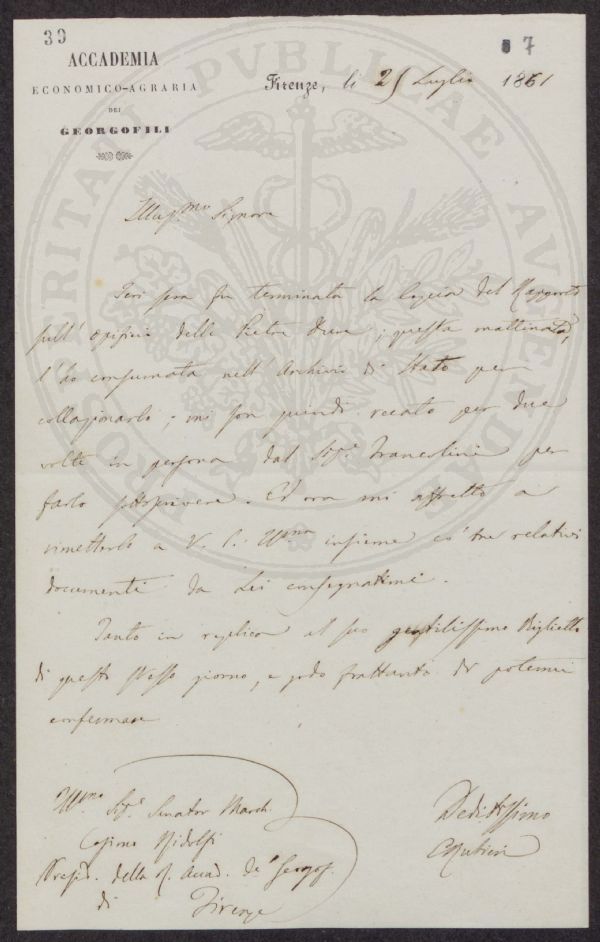 39
7
ACCADEMIA
ECONOMICO-AGRARIA
DEI
GEORGOFILI
Firenze, li 25 Luglio 1861
PROSPERITATI PVBLICAE AVGENDAE
Illus.mo Signore
Ieri sera fu terminata la copia del Rapporto
sull' opificio delle Pietre Dure; questa mattinata,
l'ho consumata nell' Archivio di Stato per
collazionarlo; mi son quindi recato per due
volte in persona dal Sig.r Franceschini per
farlo sottoscrivere. Ed ora mi affretto a
rimetterlo a V. S. Ill.ma insieme co' tre relativi
documenti da Lei consegnatimi.
Tanto in replica al suo gentilissimo Biglietto
di questo stesso giorno, e godo frattanto di potermi
confermare
Ill.mo Sig.r Senator March.
Cosimo Ridolfi
Presid. della R. Accad. de' Georgof.
di Firenze
Dedit.issimo